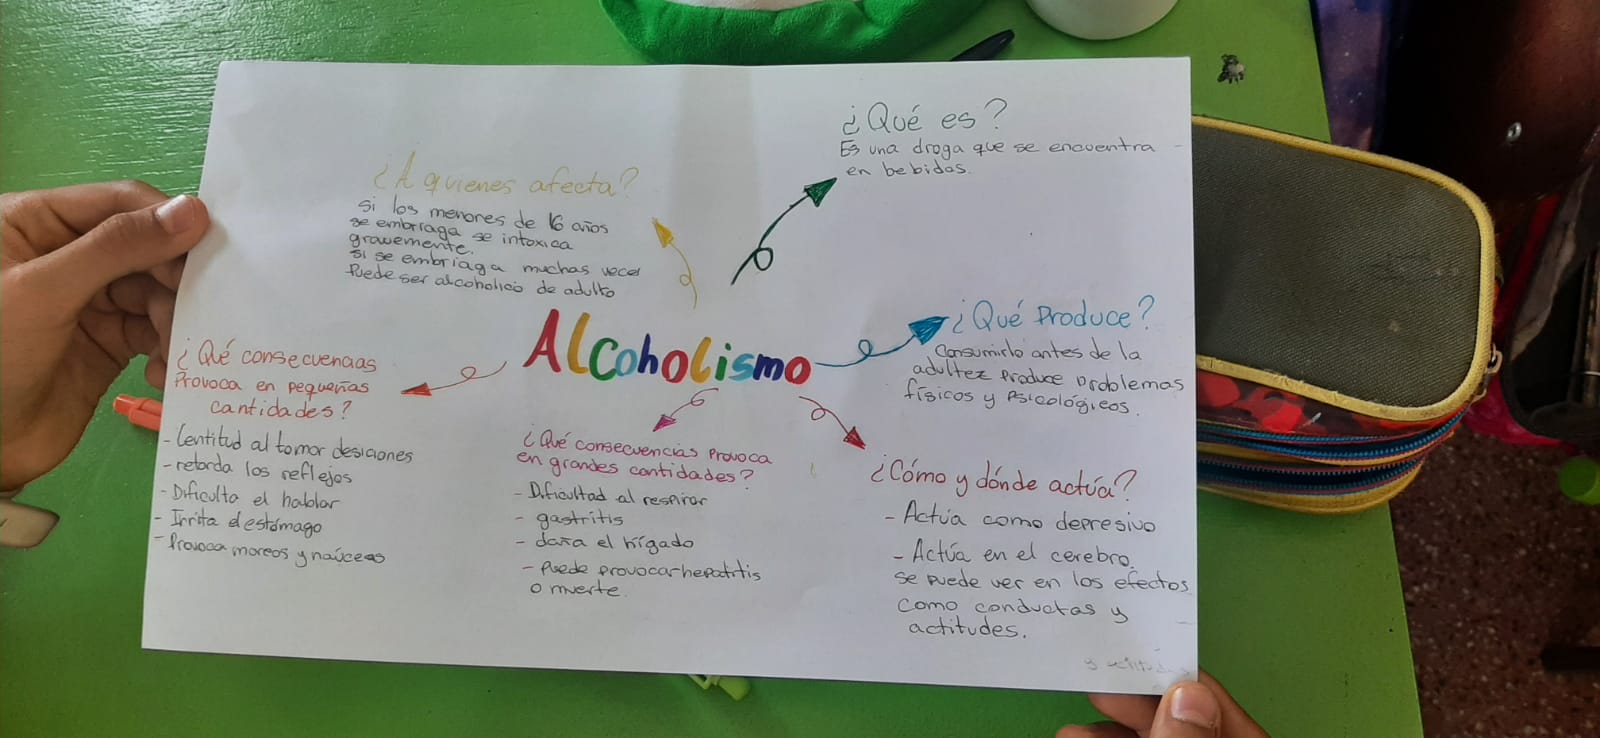 ¿Qué es?
Es una droga que se encuentra
en bebidas.
¿A quienes afecta?
Si los menores de 16 años
se embrraga se intoxica
gravemente.
Si se embriaga muchas veces
Puede ser alcoholico de adulto
Alcoholismo
¿Qué Produce?
Consumirlo antes de la
adultez Produce Problemas
físicos y Psicológicos.
¿Qué consecuencias
Provoca en pequeñas
cantidades?
- Lentitud al tomar desiciones
- retarda los reflejos
- Dificulta el hablar
- Irrita el estómago
- Provoca mareos y naúceas
¿Qué consecuencias Provoca
en grandes cantidades?
- Dificultad al respirar
- gastritis
- daña el hígado
- Puede provocar hepatitis
o muerte.
¿Cómo y dónde actúa?
- Actúa como depresivo
- Actúa en el cerebro,
se puede ver en los efectos
como conductas y
actitudes.